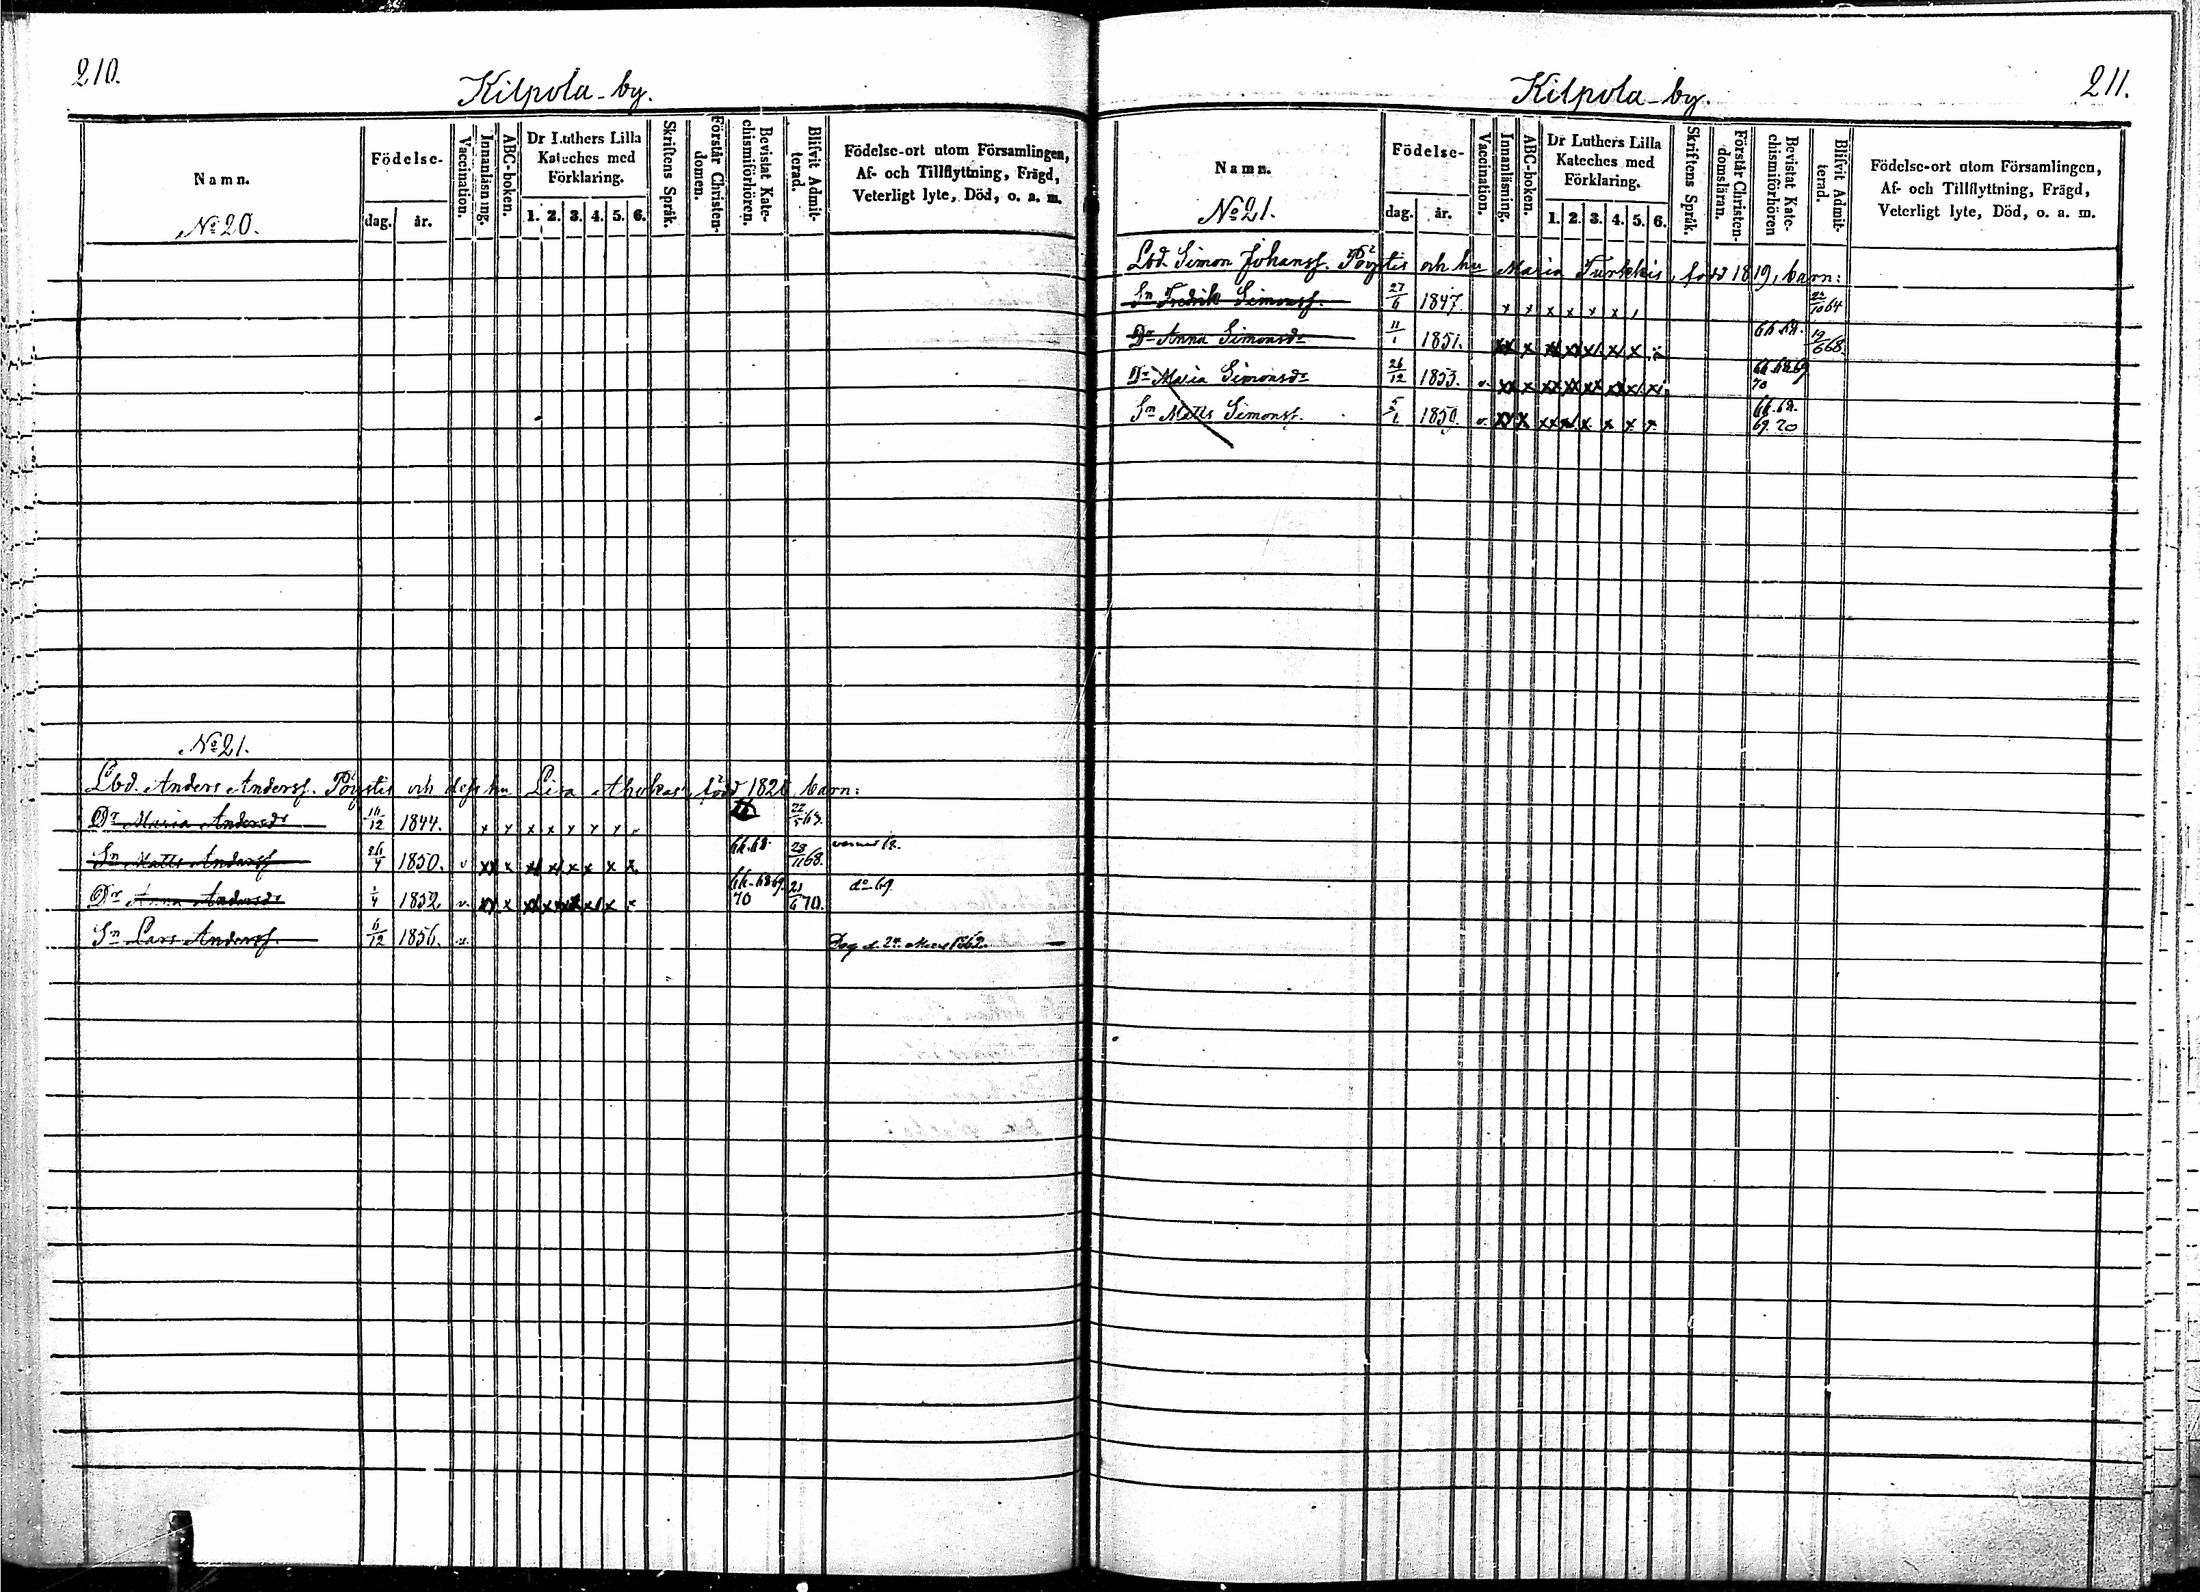 210.
Kilpola-by.
Namn.
Födelse-
dag.
år.
Vaccination.
Innanläsning.
ABC-boken.
Dr Luthers Lilla
Kateches med
Förklaring.
1. 2. 3. 4. 5. 6.
Skriftens Språk.
Förstår Christen-
domen.
Bevistat Kate-
chismiförhören.
Blifvit Admit-
terad.
Födelse-ort utom Församlingen,
Af- och Tillflyttning, Frägd,
Veterligt lyte, Död, o. a. m.
No 20.
No 21.
Lbd. Anders Anderss. Pöystis och dess hu Lisa född 1820, barn:
Dr Maria Andersdr 11/12 1844. x x x x x x x 22/5 63.
Sn Matts Anderss 1850. v xx x x x x x x x 66.68. 68.
Dr Anna Andersdr 1/4 1852. v. xx x x x x x x x 66-68 69. 70 70. do 69.
Sn Lars Anderss. 6/12 1856. v. 1862.
Kilpola-by.
211.
Namn.
Födelse-
dag.
år.
Vaccination.
Innanläsning.
ABC-boken.
Dr Luthers Lilla
Kateches med
Förklaring.
1. 2. 3. 4. 5. 6.
Skriftens Språk.
Förstår Christen-
domsläran.
Bevistat Kate-
chismiförhören
Blifvit Admit-
terad.
Födelse-ort utom Församlingen,
Af- och Tillflyttning, Frägd,
Veterligt lyte, Död, o. a. m.
No 21.
Lbd. Simon Johanss. Pöystis och hu Maria Turkkis, född 1819, barn:
Sn Fredrik Simonss. 27/6 1847. x x x x x x 22/10 64
Dr Anna Simonsdr 11/1 1851. xx x xx xx x x x x 66.68. 19/6 68.
Dr Maria Simonsdr 26/12 1853. v. xx x xx xx xx x x x 66.68.69 70
Sn Matts Simonss. 5/1 1859. v. xx x xx x x x x x 66.68. 69.70